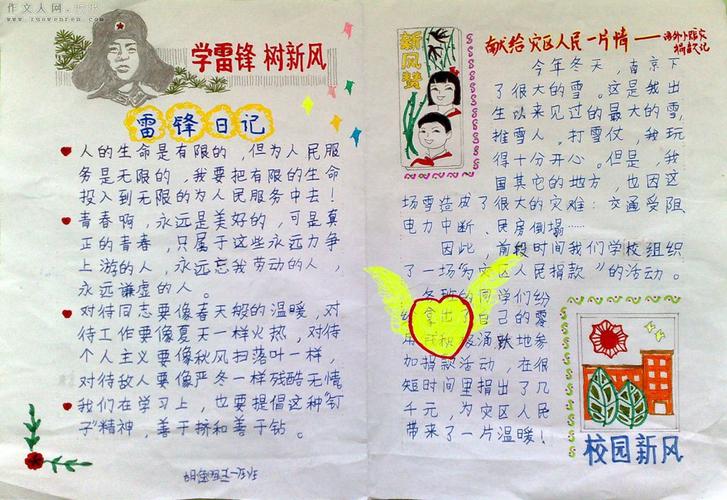 作文人网
www.zuowenren.com
学雷锋 树新风
雷锋日记
人的生命是有限的,但为人民服
务是无限的,我要把有限的生命
投入到无限的为人民服务中去!
青春啊,永远是美好的,可是真
正的青春,只属于这些永远力争
上游的人,永远忘我劳动的人,
永远谦虚的人。
对待同志要像春天般的温暖,对
待工作要像夏天一样火热,对待
个人主义要像秋风扫落叶一样,
对待敌人要像严冬一样残酷无情
我们在学习上,也要提倡这种"钉
子"精神,善于挤和善于钻。
新风赞
献给灾区人民一片情——
捐款记
今年冬天,南京下
了很大的雪。这是我出
生以来见过的最大的雪,
推雪人、打雪仗,我玩
得十分开心。但是,我
国其它的地方,也因这
场雪造成了很大的灾难:交通受阻
电力中断、民房倒塌……
因此,前段时间我们学校组织
了一场"为灾区人民捐款"的活动。
各班的同学们纷
纷拿出了自己的零
用钱积极踊跃地参
加捐款活动,在很
短时间里捐出了几
千元,为灾区人民
带来了一片温暖!
校园新风